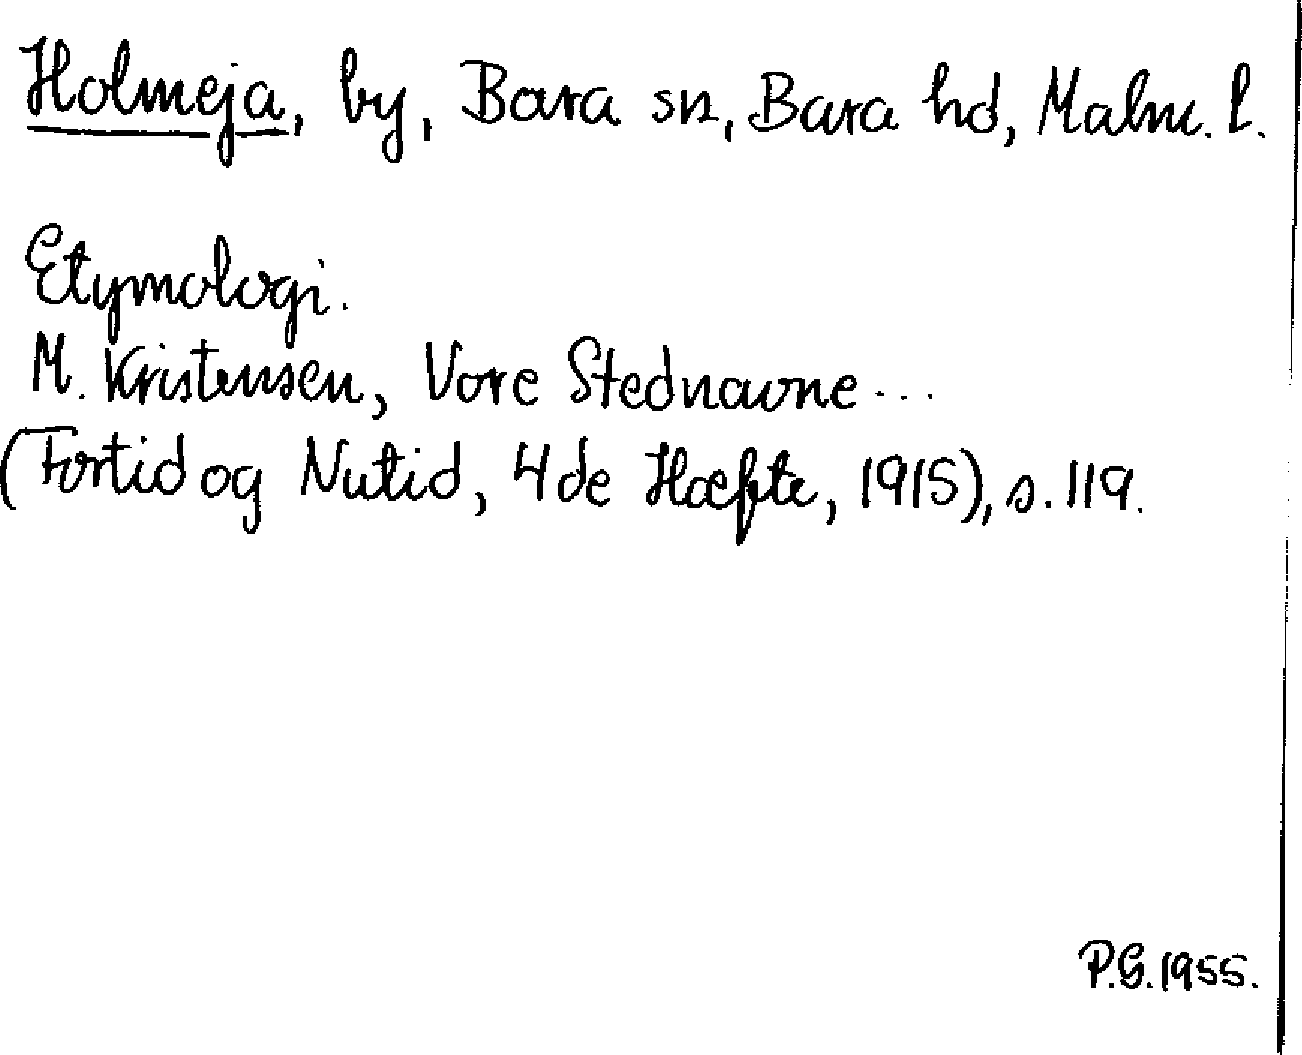 Holmeja, by, Bara sn, Bara hd, Malm. l.
Etymologi.
M. Kristensen, Vore Stednavne...
(Fortid og Nutid, 4de Hæfte, 1915), s. 119.
P.G. 1955.